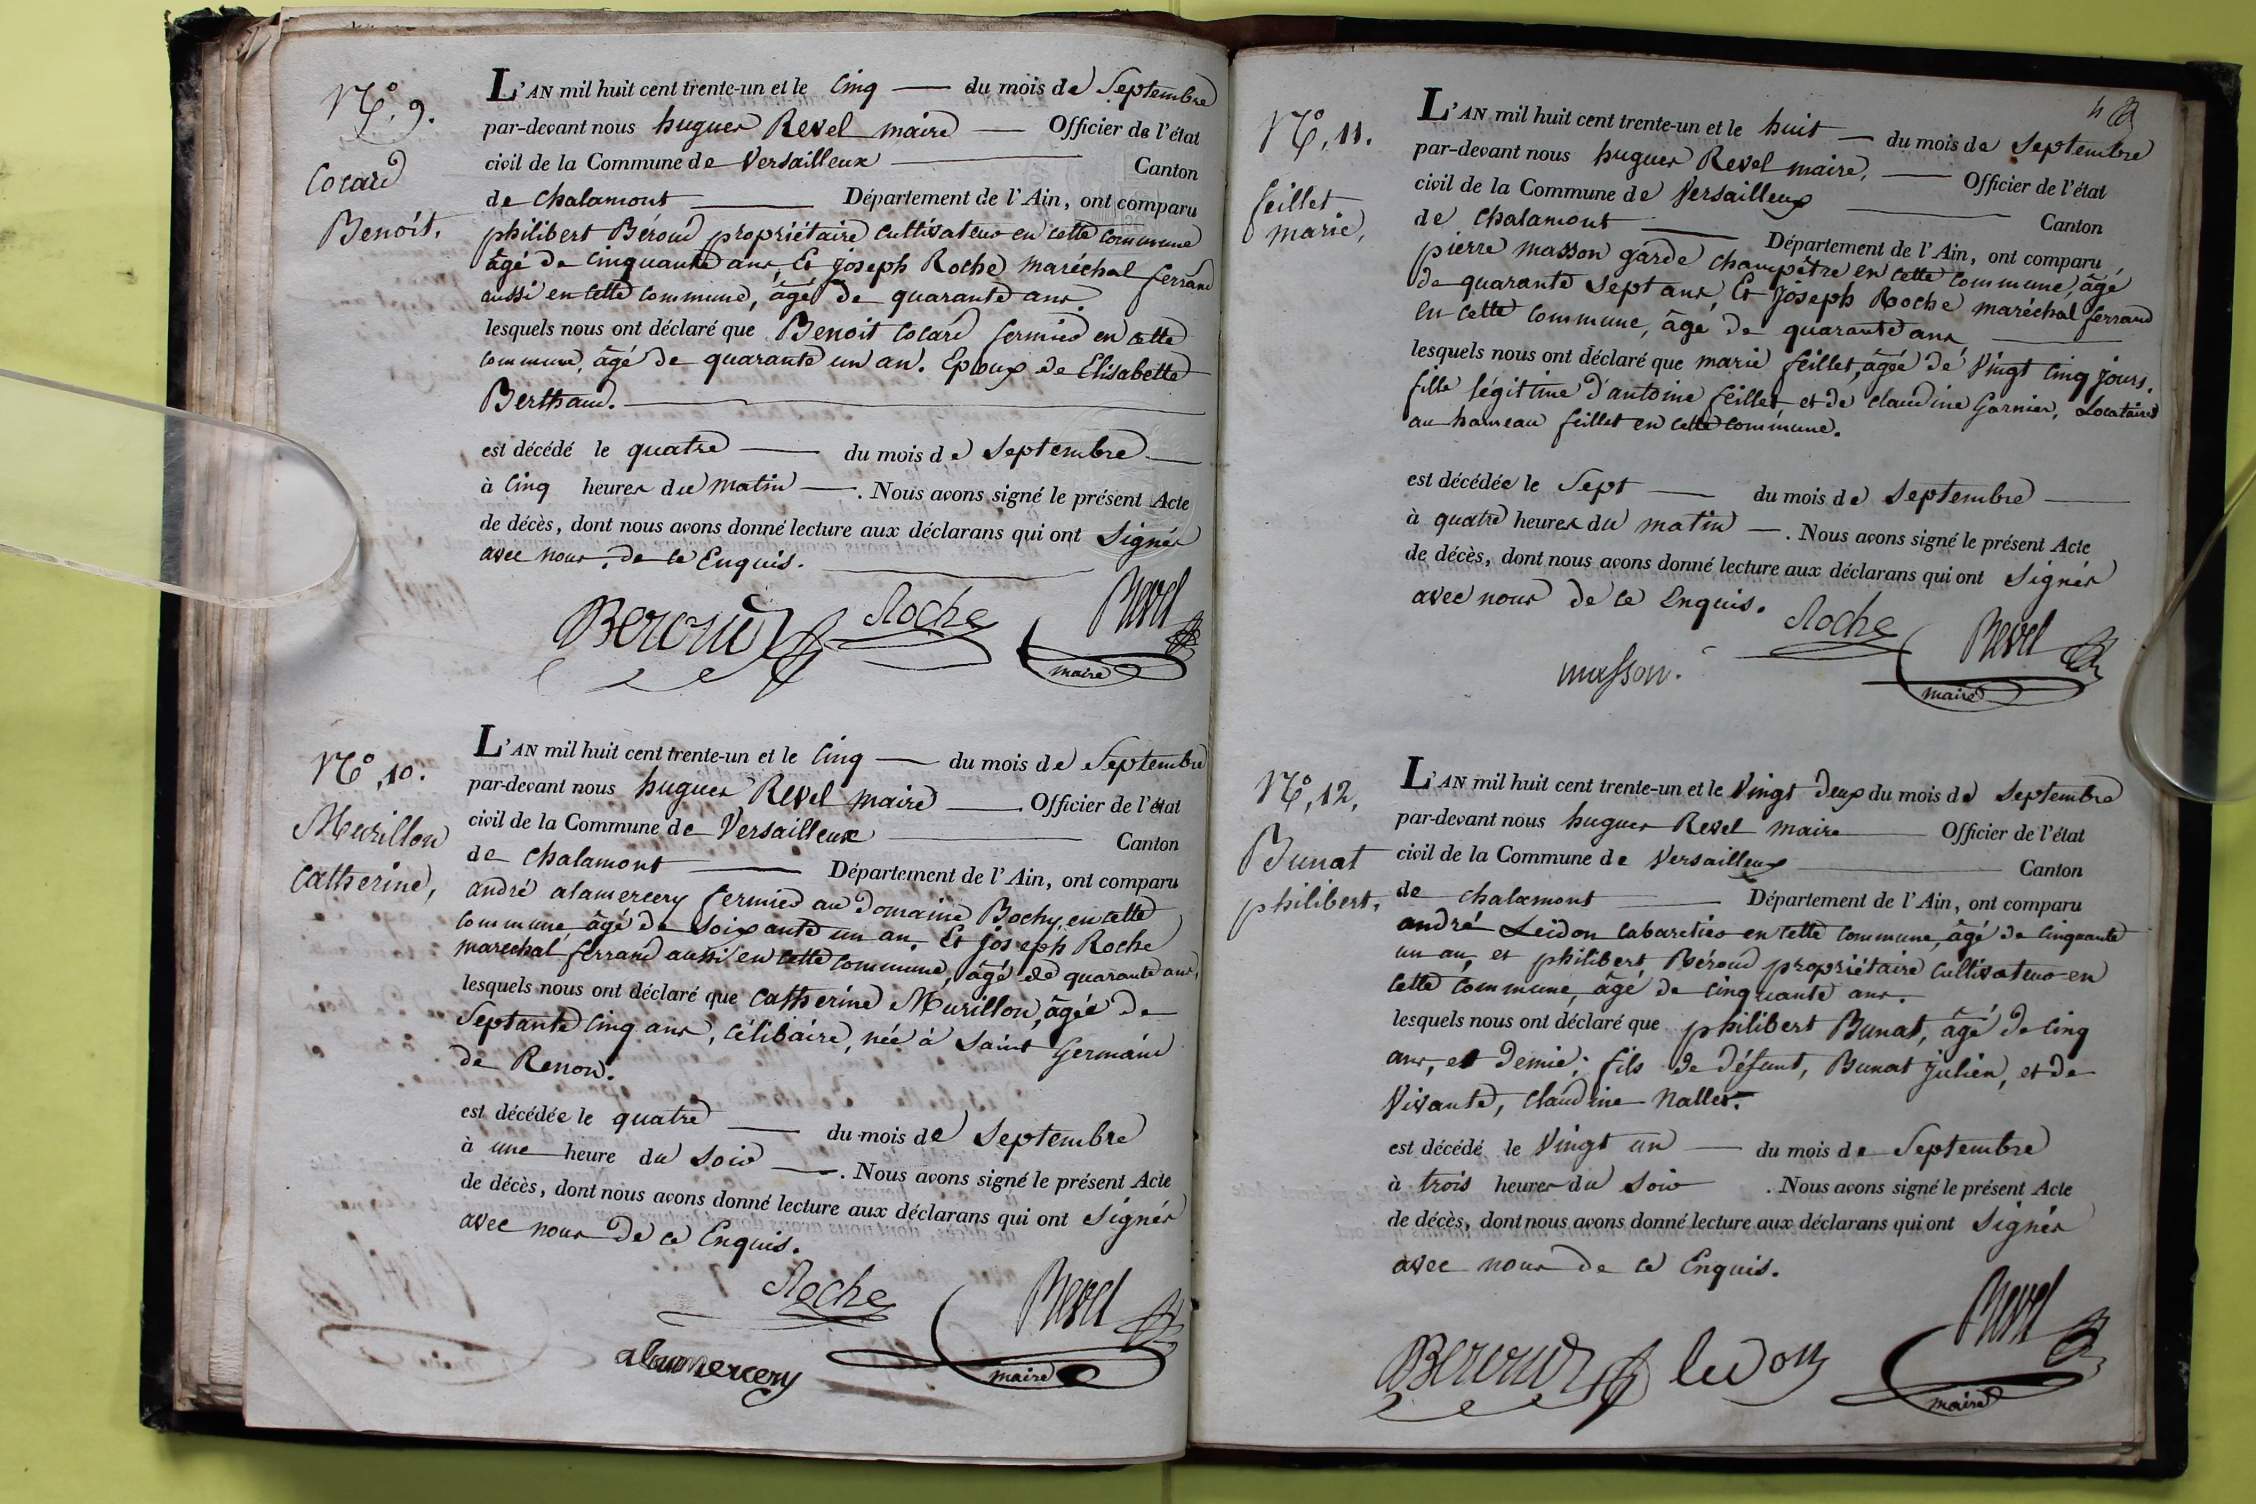 N.º 9.
Cocard
Benoit.
L'AN mil huit cent trente-un et le cinq du mois de Septembre
par-devant nous hugues Revel maire Officier de l'état
civil de la Commune de Versailleux Canton
de Chalamont Département de l'Ain, ont comparu
philibert Béroud propriétaire cultivateur en cette commune
âgé de cinquante ans, Et joseph Roche maréchal ferrand
aussi en cette commune, âgé de quarante ans
lesquels nous ont déclaré que Benoit Cocard fermier en cette
commune, âgé de quarante un an. Epoux de Elisabette
Berthaud.
est décédé le quatre du mois de Septembre
à cinq heures du matin . Nous avons signé le présent Acte
de décès, dont nous avons donné lecture aux déclarans qui ont Signés
avec nous, de ce Enquis.
Beroud Roche Revel
maire
N.º 10.
Murillon
Catherine,
L'AN mil huit cent trente-un et le cinq du mois de Septembre
par-devant nous hugues Revel maire Officier de l'état
civil de la Commune de Versailleux Canton
de Chalamont Département de l'Ain, ont comparu
andré alamercery fermier au Domaine Bochy, en cette
commune âgé de Soixante un an. Et joseph Roche
marechal ferrand aussi en cette commune, âgé de quarante ans,
lesquels nous ont déclaré que Catherine Murillon, âgée de
Septante cinq ans, célibaire, née à Saint Germain
de Renon.
est décédée le quatre du mois de Septembre
à une heure du Soir . Nous avons signé le présent Acte
de décès, dont nous avons donné lecture aux déclarans qui ont Signés
avec nous de ce Enquis.
Roche Revel
alamercery maire
4
N.º 11.
feillet
marie,
L'AN mil huit cent trente-un et le huit du mois de Septembre
par-devant nous hugues Revel maire, Officier de l'état
civil de la Commune de Versailleux Canton
de Chalamont Département de l'Ain, ont comparu
pierre masson garde champêtre en cette commune, âgé
de quarante Sept ans, Et joseph Roche maréchal ferrand
en cette commune, âgé de quarante ans
lesquels nous ont déclaré que marie feillet, âgée de Vingt cinq jours.
fille légitime d'antoine feillet et de claudine Garnier, Locataires
au hameau feillet en cette commune.
est décédée le Sept du mois de Septembre
à quatre heures du matin . Nous avons signé le présent Acte
de décès, dont nous avons donné lecture aux déclarans qui ont Signés
avec nous de ce Enquis.
Roche Revel
masson. maire
N.º 12,
Bunat
philibert.
L'AN mil huit cent trente-un et le Vingt deux du mois de Septembre
par-devant nous hugues Revel maire Officier de l'état
civil de la Commune de Versailleux Canton
de chalamont Département de l'Ain, ont comparu
andré Leidon cabaretier en cette commune, âgé de cinquante
un an, et philibert Béroud propriétaire cultivateur en
cette commune, âgé de cinquante ans.
lesquels nous ont déclaré que philibert Bunat, âgé de cinq
ans, et demie; fils de défunt, Bunat julien, et de
Vivante, claudine Nallet.
est décédé le Vingt un du mois de Septembre
à trois heures du Soir . Nous avons signé le présent Acte
de décès, dont nous avons donné lecture aux déclarans qui ont Signés
avec nous de ce Enquis.
Beroud ledon Revel
maire